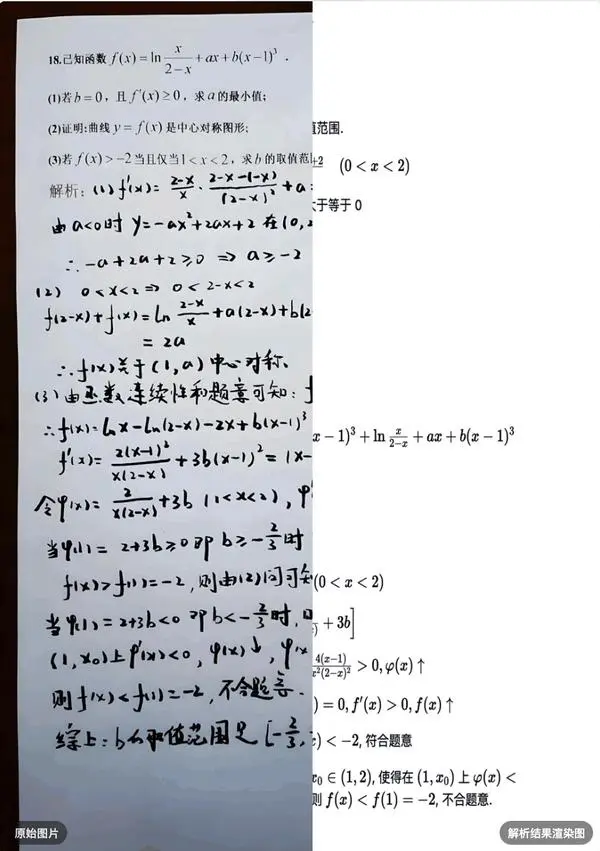 18.已知函数 f(x)=ln x/(2-x) +ax+b(x-1)³ .
(1)若b=0，且f′(x)≥0，求a的最小值；
值范围.
(2)证明:曲线 y=f(x)是中心对称图形；
(3)若f(x)>-2当且仅当1<x<2，求b的取值范
+2 (0<x<2)
解析：(1) f′(x)= (2-x)/x · (2-x-(-x))/(2-x)² +a
大于等于 0
由a<0时 y=-ax²+2ax+2 在(0,2
∴ -a+2a+2≥0 ⇒ a≥-2
(2) 0<x<2 ⇒ 0<2-x<2
f(2-x)+f(x)=ln (2-x)/x +a(2-x)+b(2
=2a
∴f(x)关于(1,a)中心对称.
(3)由函数连续性和题意可知: f
∴f(x)=lnx-ln(2-x)-2x+b(x-1)³
x-1)³+ln x/(2-x) +ax+b(x-1)³
f′(x)= 2(x-1)²/(x(2-x)) +3b(x-1)²=(x-
令φ(x)= 2/(x(2-x)) +3b (1<x<2), φ′
当φ(1)=2+3b≥0即b≥-2/3时
f(x)>f(1)=-2,则由(2)问可知
(0<x<2)
当φ(1)=2+3b<0即b<-2/3时,
+3b]
(1,x₀)上φ′(x)<0, φ(x)↓, φ(x
4(x-1)/(x²(2-x)²) >0,φ(x)↑
则f(x)<f(1)=-2,不合题意.
)=0,f′(x)>0,f(x)↑
综上:b的取值范围是[-2/3,
)<-2, 符合题意
x₀∈(1,2), 使得在(1,x₀)上φ(x)<
则 f(x)<f(1)=-2, 不合题意.
原始图片
解析结果渲染图